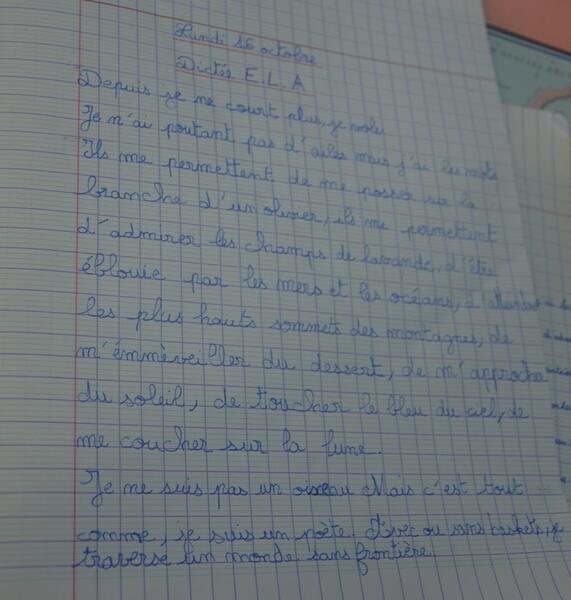 Lundi 16 octobre
Dictée E.L.A
Depuis je ne court plus, je vole
Je n'ai poutant pas d'ailes mais j'ai les mots
Ils me permettent de me posser sur la
branche d'un olivier, ils me permettent
d'admirer les champs de lavande, d'être
éblouie par les mers et les océans, d'
les plus hauts sommets des montagnes, de
m'émmèrveiller du dessert, de m'approche
du soleil, de toucher le bleu du ciel, de
me coucher sur la lune.
Je ne suis pas un oiseau Mais c'est tout
comme, je suis un poète. Avec ou sans baskets, je
traverse un monde sans frontière.